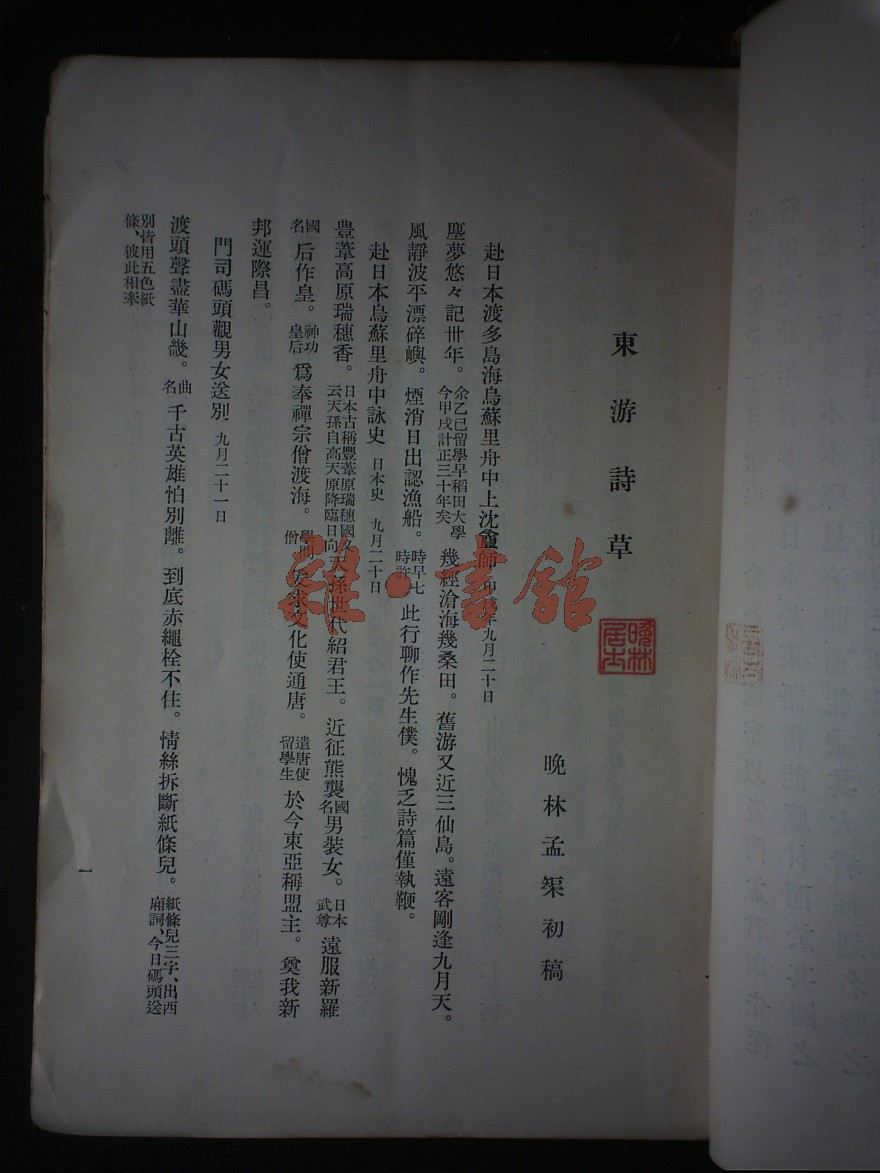 東游詩草
晚林居士
晚林孟榘初稿
赴日本渡多島海烏蘇里舟中上沈盦師 甲戌年九月二十日
塵夢悠々記卅年。余乙巳留學早稻田大學今甲戌計正三十年矣 幾經滄海幾桑田。舊游又近三仙島。遠客剛逢九月天。
風靜波平漂碎嶼。煙消日出認漁船。時早七時許 此行聊作先生僕。愧乏詩篇僅執鞭。
赴日本烏蘇里舟中詠史 日本史 九月二十日
豊葦高原瑞穗香。日本古稱豐葦原瑞穗國又云天孫自高天原降臨日向 天孫世代紹君王。近征熊襲國名男裝女。日本武尊 遠服新羅
國名后作皇。神功皇后 爲奉禪宗僧渡海。學問僧 求文化使通唐。遣唐使留學生 於今東亞稱盟主。奠我新
邦運際昌。
門司碼頭觀男女送別 九月二十一日
渡頭聲盡華山畿。曲名 千古英雄怕別離。到底赤繩栓不住。情絲拆斷紙條兒。紙條兒三字、出西廂詞、今日碼頭送
別皆用五色紙條、彼此相牽
一
雜·書館